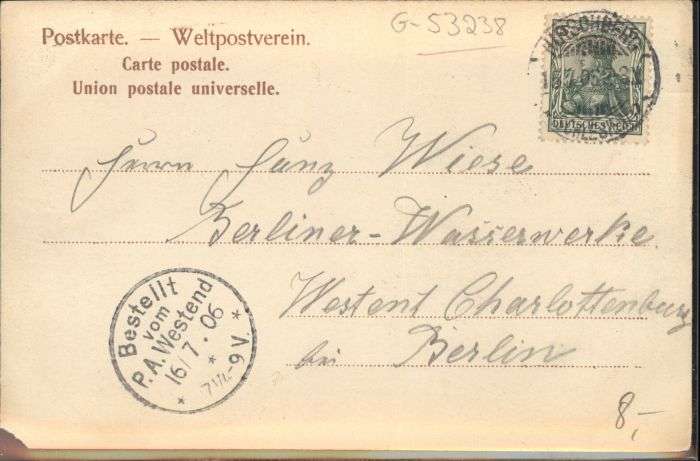 G-S3238
Postkarte. — Weltpostverein.
Carte postale.
Union postale universelle.
DEUTSCHES REICH
Herrn Hanz Wiese
Berliner-Wasserwerke
Westent Charlottenburg
bei Berlin
Bestellt
vom
P.A. Westend
16/7.06
* 7½-9V. *
8,-